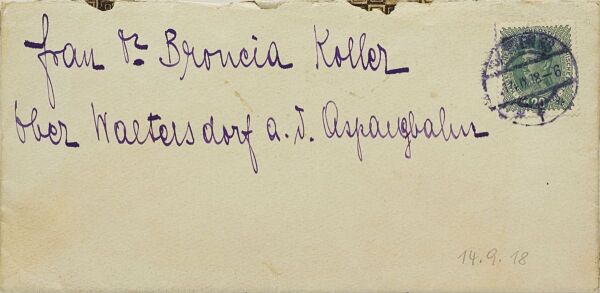 frau Dr Broncia Koller
Ober Waltersdorf a. d. Aspangbahn
20
14.9.18